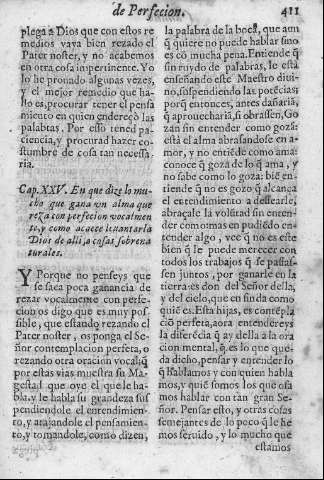 de Perfecion. 411
plega a Dios que con estos re
medios vaya bien rezado el
Pater noster, y no acabemos
en otra cosa impertinente. Yo
lo he prouado algunas vezes,
y el mejor remedio que ha-
llo es, procurar tener el pensa
miento en quien endereçò las
palabras. Por esso tened pa-
ciencia, y procurad hazer co-
stumbre de cosa tan necessa-
ria.
Cap. XXV. En que dize lo mu-
cho que gana vn alma que
reza con perfecion vocalmen
te, y como acaece leuantarla
Dios de alli a cosas sobrena
turales.
Y Porque no penseys que
se saca poca ganancia de
rezar vocalmente con perfe-
cion os digo que es muy pos-
sible, que estando rezando el
Pater noster, os ponga el Se-
ñor contemplacion perfeta, o
rezando otra oracion vocal, q̃
por estas vias muestra su Ma-
gestad que oye el que le ha-
bla, y le habla su grandeza sus
pendiendole el entendimien-
to, y atajandole el pensamien-
to, y tomandole, como dizen,
la palabra de la boca, que aun
q̃ quiere no puede hablar sino
es cõ mucha pena. Entiende q̃
sin ruydo de palabras, le està
enseñando este Maestro diui-
no, suspendiendo las potẽcias:
porq̃ entonces, antes dañaria,
q̃ aprouecharia, si obrassen, Go
zan sin entender como gozã:
està el alma abrasandose en a-
mor, y no entiẽde como ama:
conoce q̃ goza de lo q̃ ama, y
no sabe como lo goza: biẽ en-
tiende q̃ no es gozo q̃ alcança
el entendimiento a dessearle;
abraçale la volũtad sin enten-
der como: mas en pudiẽdo en-
tender algo, vee q̃ no es este
bien q̃ le puede merecer con
todos los trabajos q̃ se passas-
sen juntos, por ganarle en la
tierra: es don del Señor della,
y del cielo, que en fin da como
quiẽ es. Esta hijas, es contẽpla
ciõ perfeta, aora entendereys
la diferẽcia q̃ ay della a la ora
cion mental, q̃ es lo que quê-
da dicho, pensar y entender lo
q̃ hablamos y con quien habla
mos, y quiẽ somos los que osa
mos hablar con tan gran Se-
ñor. Pensar esto, y otras cosas
semejantes de lo poco q̃ le he
mos seruido, y lo mucho que
estamos